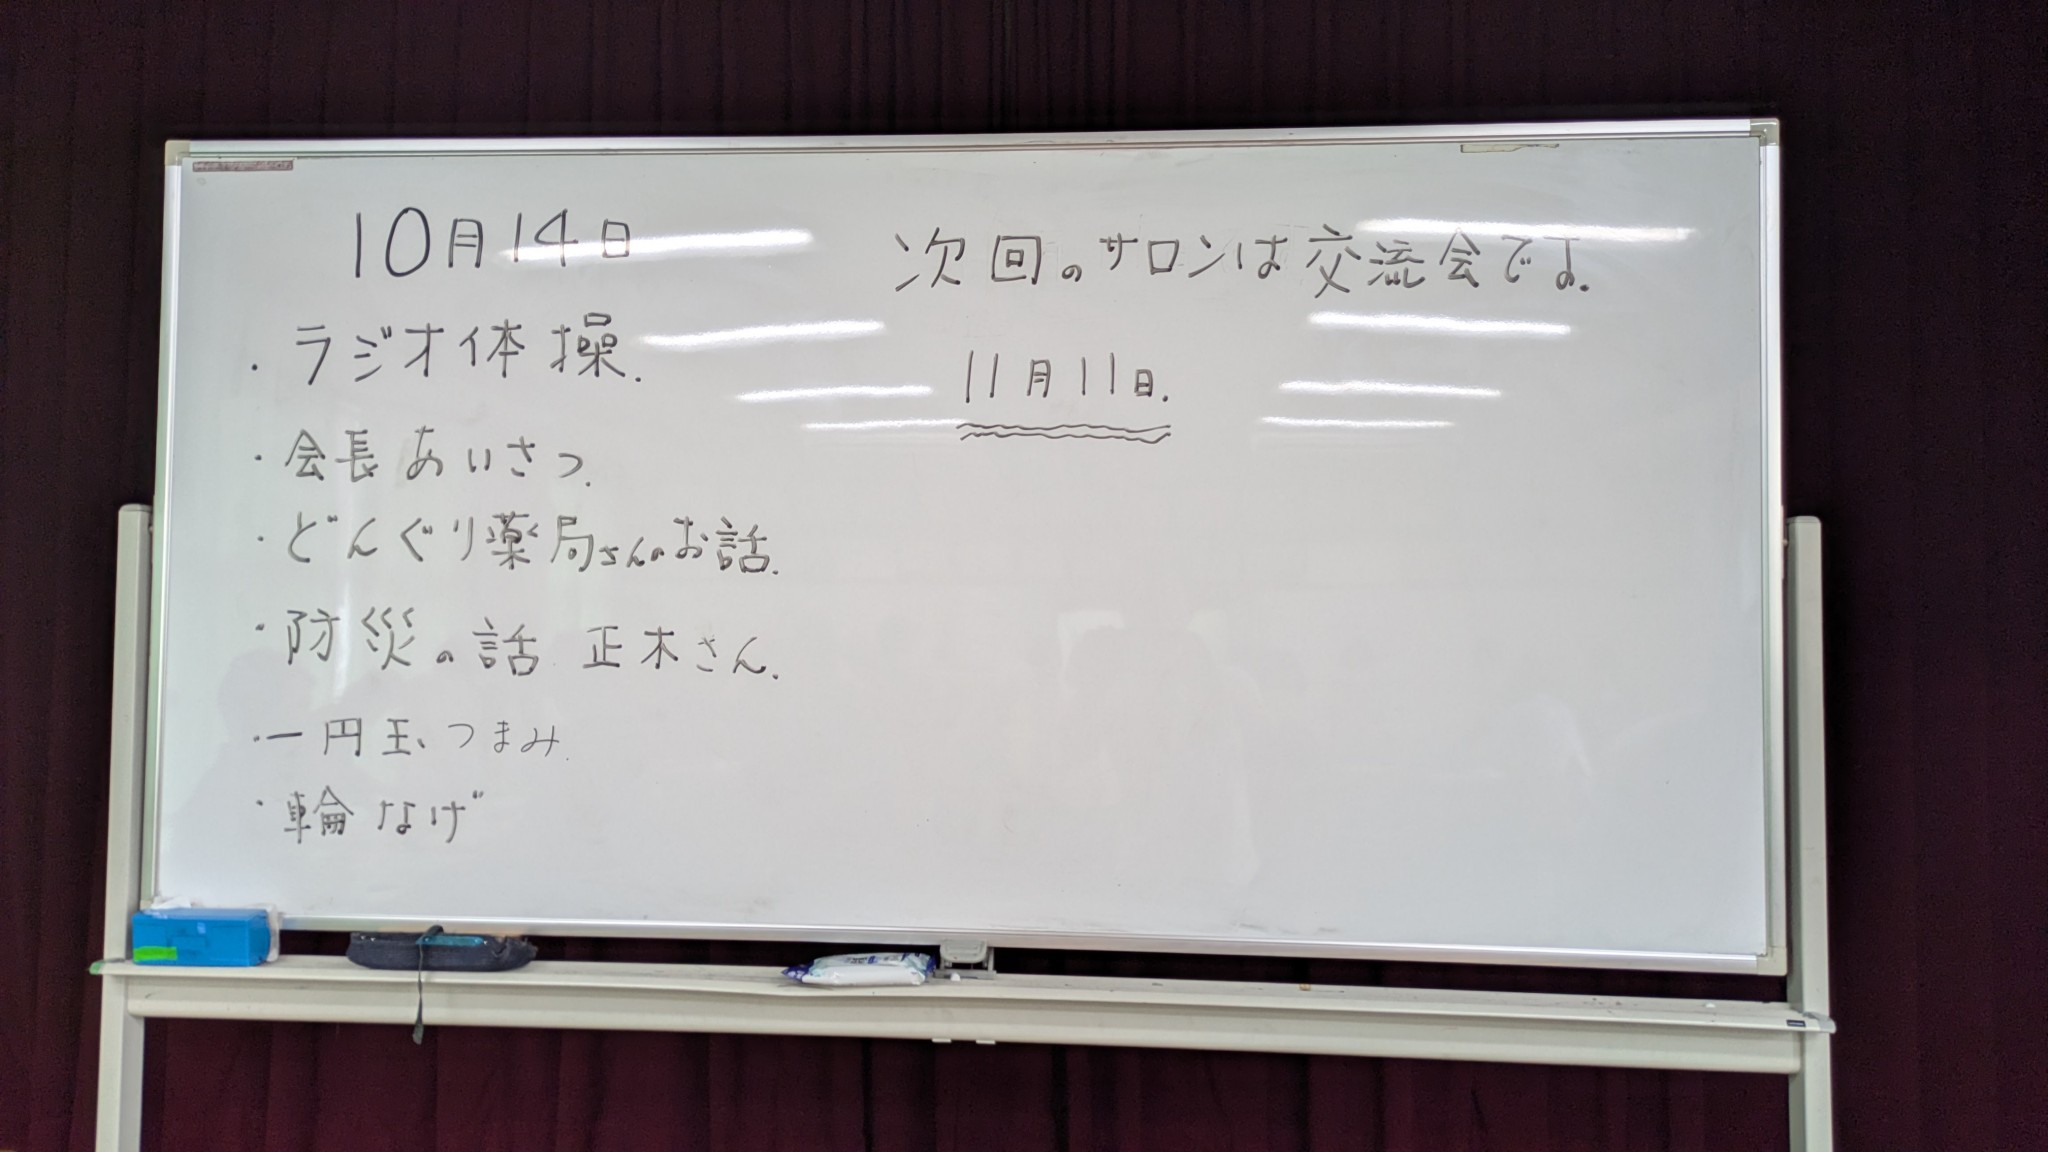 10月14日
・ラジオ体操.
・会長あいさつ.
・どんぐり薬局さんのお話.
・防災の話 正木さん.
・一円玉、つまみ.
・輪なげ
次回のサロンは交流会です.
11月11日.